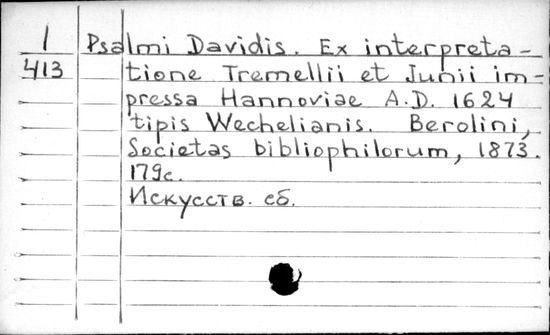 1
413
Psalmi Davidis. Ex interpreta-
tione Tremellii et Junii im-
pressa Hannoviae A.D. 1624
tipis Wechelianis. Berolini,
Societas bibliophilorum, 1873.
179с.
Искусств. сб.